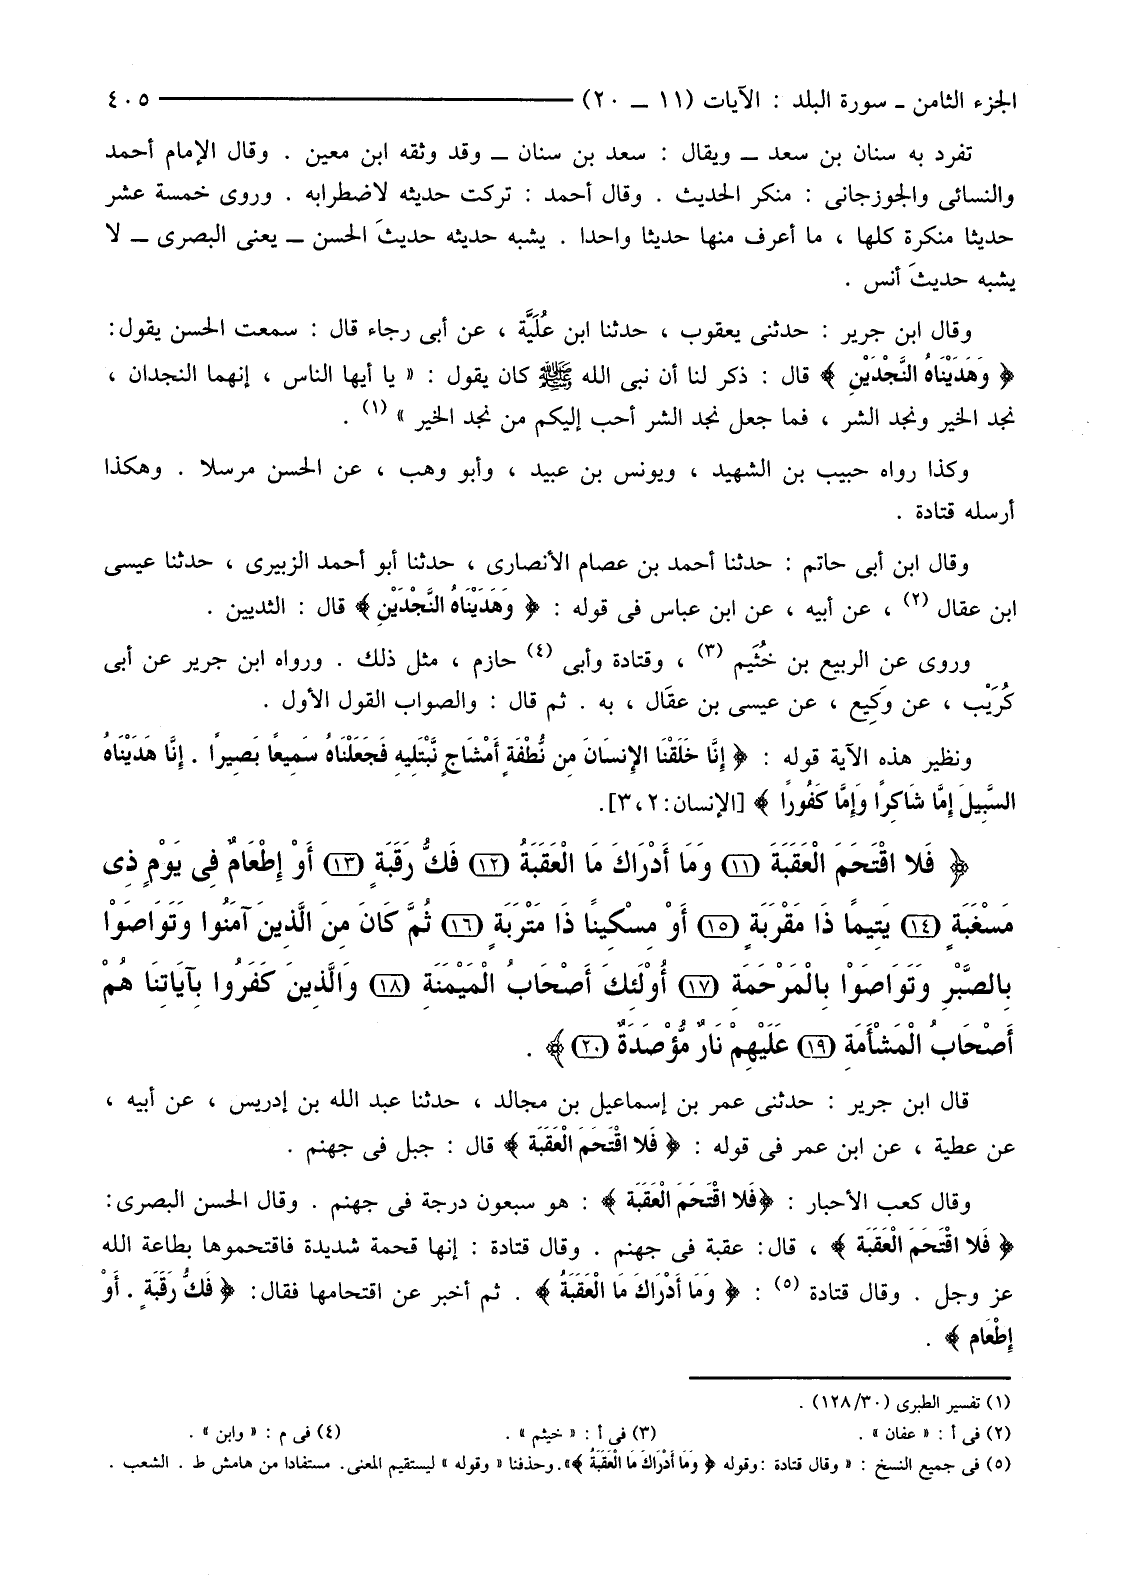 الجزء الثامن ـ سورة البلد : الآيات (١١ ــ ٢٠) ــــــــــــــــ ٤٠٥
تفرد به سنان بن سعد ــ ويقال : سعد بن سنان ــ وقد وثقه ابن معين . وقال الإمام أحمد
والنسائى والجوزجانى : منكر الحديث . وقال أحمد : تركت حديثه لاضطرابه . وروى خمسة عشر
حديثا منكرة كلها ، ما أعرف منها حديثا واحدا . يشبه حديثه حديثَ الحسن ــ يعنى البصرى ــ لا
يشبه حديثَ أنس .
وقال ابن جرير : حدثنى يعقوب ، حدثنا ابن عُلَيَّة ، عن أبى رجاء قال : سمعت الحسن يقول:
﴿ وَهَدَيْنَاهُ النَّجْدَيْنِ ﴾ قال : ذكر لنا أن نبى الله ﷺ كان يقول : « يا أيها الناس ، إنهما النجدان ،
نجد الخير ونجد الشر ، فما جعل نجد الشر أحب إليكم من نجد الخير » (١) .
وكذا رواه حبيب بن الشهيد ، ويونس بن عبيد ، وأبو وهب ، عن الحسن مرسلا . وهكذا
أرسله قتادة .
وقال ابن أبى حاتم : حدثنا أحمد بن عصام الأنصارى ، حدثنا أبو أحمد الزبيرى ، حدثنا عيسى
ابن عقال (٢) ، عن أبيه ، عن ابن عباس فى قوله : ﴿ وَهَدَيْنَاهُ النَّجْدَيْنِ ﴾ قال : الثديين .
وروى عن الربيع بن خُثَيم (٣) ، وقتادة وأبى (٤) حازم ، مثل ذلك . ورواه ابن جرير عن أبى
كُرَيْب ، عن وَكِيع ، عن عيسى بن عقَال ، به . ثم قال : والصواب القول الأول .
ونظير هذه الآية قوله : ﴿ إِنَّا خَلَقْنَا الإِنسَانَ مِن نُّطْفَةٍ أَمْشَاجٍ نَّبْتَلِيهِ فَجَعَلْنَاهُ سَمِيعًا بَصِيرًا . إِنَّا هَدَيْنَاهُ
السَّبِيلَ إِمَّا شَاكِرًا وَإِمَّا كَفُورًا ﴾ [الإنسان: ٢، ٣].
﴿ فَلا اقْتَحَمَ الْعَقَبَةَ (١١) وَمَا أَدْرَاكَ مَا الْعَقَبَةُ (١٢) فَكُّ رَقَبَةٍ (١٣) أَوْ إِطْعَامٌ فِى يَوْمٍ ذِى
مَسْغَبَةٍ (١٤) يَتِيمًا ذَا مَقْرَبَةٍ (١٥) أَوْ مِسْكِينًا ذَا مَتْرَبَةٍ (١٦) ثُمَّ كَانَ مِنَ الَّذِينَ آمَنُوا وَتَوَاصَوْا
بِالصَّبْرِ وَتَوَاصَوْا بِالْمَرْحَمَةِ (١٧) أُوْلَئِكَ أَصْحَابُ الْمَيْمَنَةِ (١٨) وَالَّذِينَ كَفَرُوا بِآيَاتِنَا هُمْ
أَصْحَابُ الْمَشْأَمَةِ (١٩) عَلَيْهِمْ نَارٌ مُّؤْصَدَةٌ (٢٠) ﴾ .
قال ابن جرير : حدثنى عمر بن إسماعيل بن مجالد ، حدثنا عبد الله بن إدريس ، عن أبيه ،
عن عطية ، عن ابن عمر فى قوله : ﴿ فَلا اقْتَحَمَ الْعَقَبَةَ ﴾ قال : جبل فى جهنم .
وقال كعب الأحبار : ﴿فَلا اقْتَحَمَ الْعَقَبَةَ ﴾ : هو سبعون درجة فى جهنم . وقال الحسن البصرى:
﴿ فَلا اقْتَحَمَ الْعَقَبَةَ ﴾ ، قال: عقبة فى جهنم . وقال قتادة : إنها قحمة شديدة فاقتحموها بطاعة الله
عز وجل . وقال قتادة (٥) : ﴿ وَمَا أَدْرَاكَ مَا الْعَقَبَةُ ﴾ . ثم أخبر عن اقتحامها فقال: ﴿ فَكُّ رَقَبَةٍ . أَوْ
إِطْعَام ﴾ .
(١) تفسير الطبرى (٣٠/ ١٢٨) .
(٢) فى أ : « عفان » . (٣) فى أ : « خيثم » . (٤) فى م : « وابن » .
(٥) فى جميع النسخ : « وقال قتادة :وقوله ﴿ وَمَا أَدْرَاكَ مَا الْعَقَبَةُ ﴾».وحذفنا « وقوله » ليستقيم المعنى. مستفادا من هامش ط . الشعب .